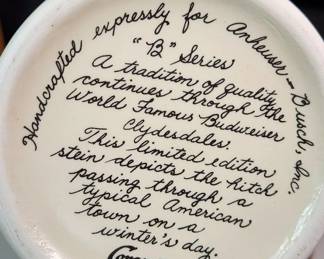 Handcrafted expressly for Anheuser-Busch, Inc.
"B" Series
A tradition of quality
continues through the
World Famous Budweiser
Clydesdales.
This limited edition
stein depicts the hitch
passing through a
typical American
town on a
winter's day.